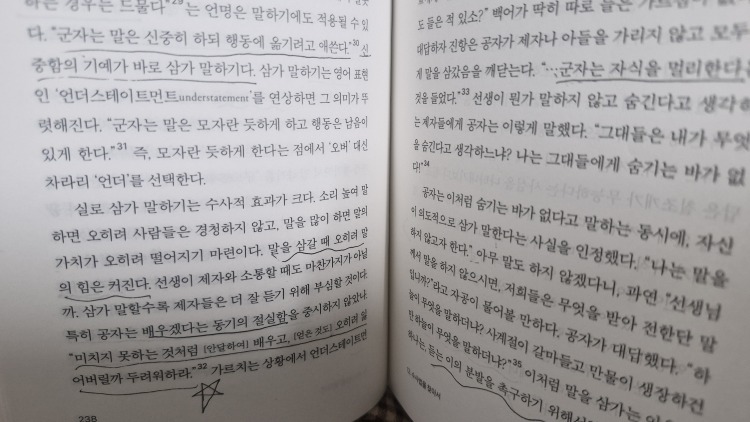 하는 경우는 드물다"29 는 언명은 말하기에도 적용될 수 있
다. "군자는 말은 신중히 하되 행동에 옮기려고 애쓴다."30 신
중함의 기예가 바로 삼가 말하기다. 삼가 말하기는 영어 표현
인 '언더스테이트먼트understatement'를 연상하면 그 의미가 뚜
렷해진다. "군자는 말은 모자란 듯하게 하고 행동은 남음이
있게 한다."31 즉, 모자란 듯하게 한다는 점에서 '오버' 대신
차라리 '언더'를 선택한다.
실로 삼가 말하기는 수사적 효과가 크다. 소리 높여 말
하면 오히려 사람들은 경청하지 않고, 말을 많이 하면 말의
가치가 오히려 떨어지기 마련이다. 말을 삼갈 때 오히려 말
의 힘은 커진다. 선생이 제자와 소통할 때도 마찬가지가 아닐
까. 삼가 말할수록 제자들은 더 잘 듣기 위해 부심할 것이다.
특히 공자는 배우겠다는 동기의 절실함을 중시하지 않았나.
"미치지 못하는 것처럼 [안달하여] 배우고, [얻은 것도] 오히려 잃
어버릴까 두려워하라."32 가르치는 상황에서 언더스테이트먼
238
도 들은 적 있소?" 백어가 딱히 따로 들은 가르침이
대답하자 진항은 공자가 제자나 아들을 가리지 않고 모두
게 말을 삼갔음을 깨닫는다. "…군자는 자식을 멀리한다는
것을 들었다."33 선생이 뭔가 말하지 않고 숨긴다고 생각하
는 제자들에게 공자는 이렇게 말했다. "그대들은 내가 무엇
을 숨긴다고 생각하느냐? 나는 그대들에게 숨기는 바가 없
다!"34
공자는 이처럼 숨기는 바가 없다고 말하는 동시에, 자신
이 의도적으로 삼가 말한다는 사실을 인정했다. "나는 말을
하지 않고자 한다." 아무 말도 하지 않겠다니, 과연 "선생님
께서 말을 하지 않으시면, 저희들은 무엇을 받아 전한단 말
입니까?"라고 자공이 물어볼 만하다. 공자가 대답했다. "하
늘이 무엇을 말하더냐? 사계절이 갈마들고 만물이 생장하건
만 하늘이 무엇을 말하더냐?"35 이처럼 말을 삼가는
하나는, 듣는 이의 분발을 촉구하기 위해서